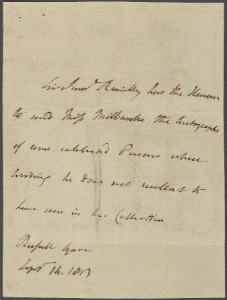 Sir Saml Romilly has the Honour
to send Miss Milbanke the Autographs
of some celebrated Persons whose
writing he does not recollect to
have seen in her Collection
Russell Square
Sept 14. 1813